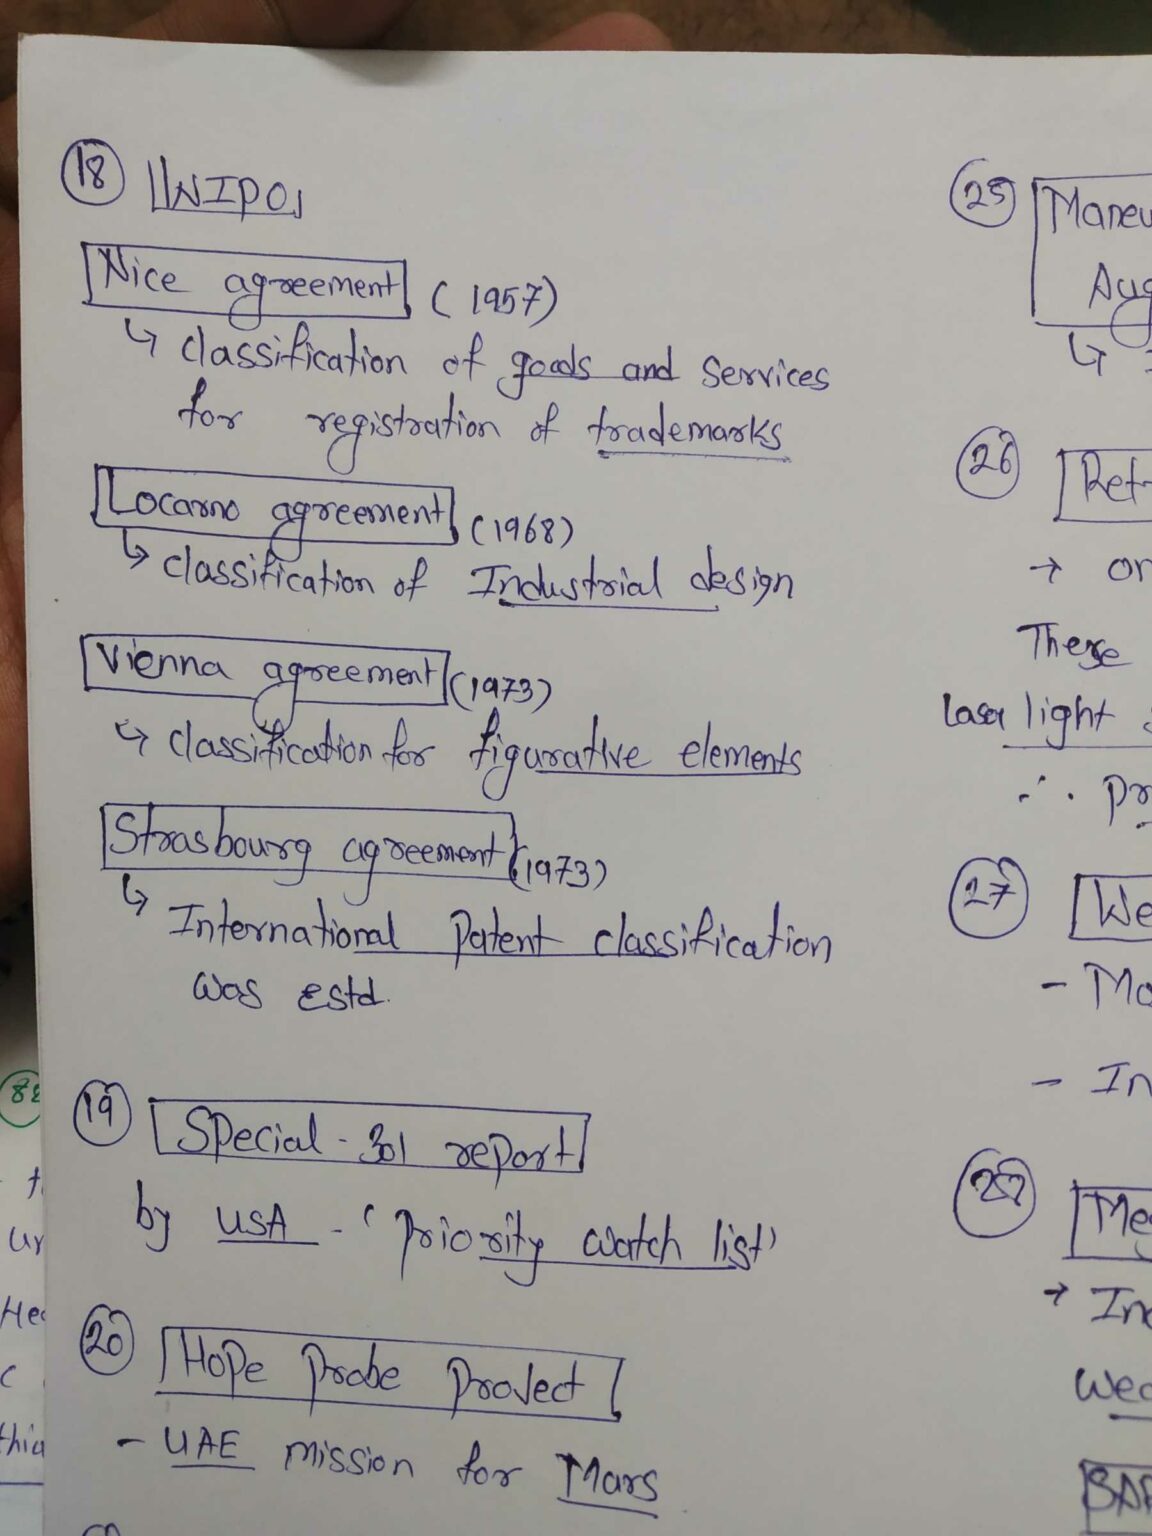 18 WIPO
Nice agreement (1957)
↳ classification of goods and services
for registration of trademarks
Locarno agreement (1968)
↳ classification of Industrial design
Vienna agreement (1973)
↳ classification for figurative elements
Strasbourg agreement (1973)
↳ International Patent classification
was estd.
19 Special-301 report
by USA - 'Priority watch list'
20 Hope Probe Project
- UAE mission for Mars
25
26
→
These
laser light
∴
27
-
- In
→